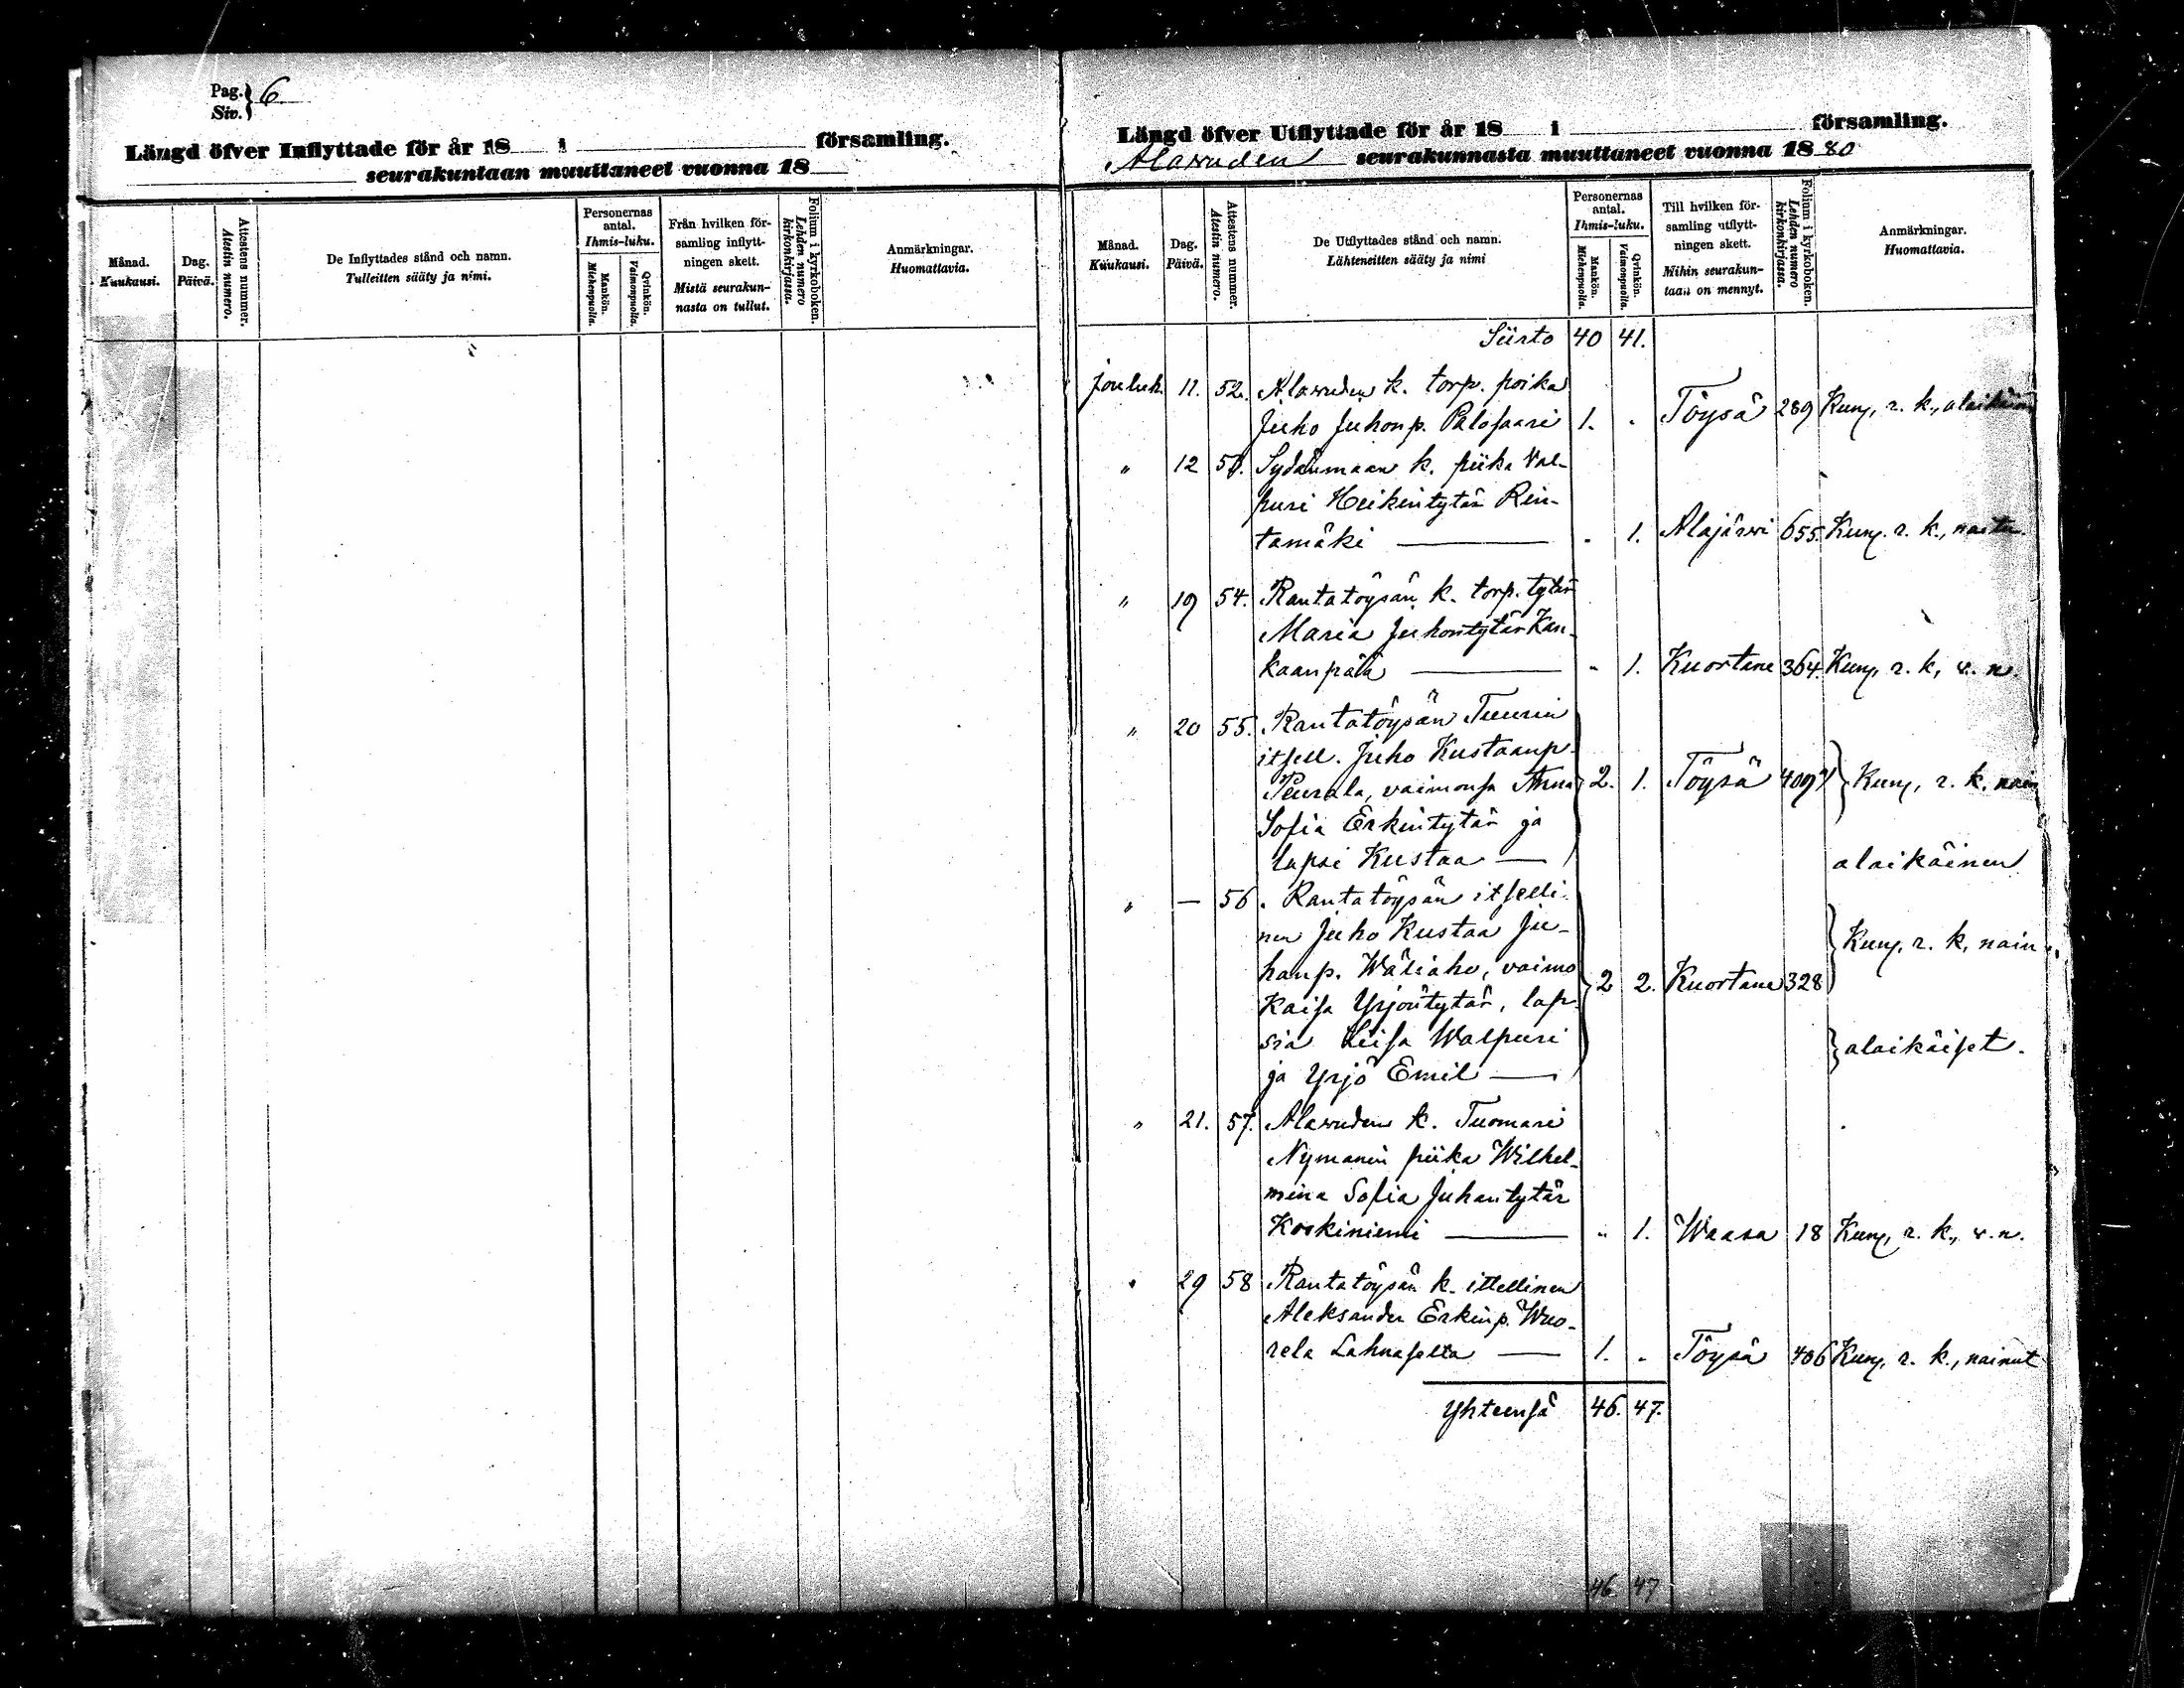 Pag. } 6
Siv.
Längd öfver Inflyttade för år 18 i församling.
seurakuntaan muuttaneet vuonna 18
Månad. Kuukausi.
Dag. Päivä.
Attestens nummer. Atestin numero.
De Inflyttades stånd och namn. Tulleitten sääty ja nimi.
Personernas antal. Ihmis-luku.
Mankön. Miehenpuolia.
Qvinkön. Vaimonpuolia.
Från hvilken församling inflyttningen skett. Mistä seurakunnasta on tullut.
Folium i kyrkoboken. Lehden numero kirkonkirjassa.
Anmärkningar. Huomattavia.
Längd öfver Utflyttade för år 18 i församling.
Alawuden seurakunnasta muuttaneet vuonna 1880
Månad. Kuukausi.
Dag. Päivä.
Attestens nummer. Atestin numero.
De Utflyttades stånd och namn. Lähteneitten sääty ja nimi
Personernas antal. Ihmis-luku.
Mankön. Miehenpuolia.
Qvinkön. Vaimonpuolia.
Till hvilken församling utflyttningen skett. Mihin seurakuntaan on mennyt.
Folium i kyrkoboken. Lehden numero kirkonkirjassa.
Anmärkningar. Huomattavia.
Siirto 40 41.
Jouluk. 11. 52. Alawuden k. torp. poika
Juho Juhonp. Palosaari 1. . Töysä 289 r. k., alaikäin
" 12 Sydänmaan k. piika Val-
puri Heikintytär Rin-
tamäki — " 1. Alajärwi 655. r. k.,
" 19 54. Rantatöysän k. torp. tytär
Maria Juhontytär Kan-
kaanpää — " 1. Kuortane 364. r. k, w. n.
" 20 55. Rantatöysän Tuurin
itsell. Juho Kustaanp.
Peurala, vaimonsa Anna 2. 1. Töysä r. k. nain
Sofia Erkintytär ja
lapsi Kustaa — alaikäinen
" — 56. Rantatöysän itselli-
nen Juho Kustaa Ju- r. k, nain
hanp. Wäliaho, vaimo 2 2. Kuortane 328
Kaisa Yrjöntytär, lap-
sia Liisa Walpuri alaikäiset.
ja Yrjö Emil —
" 21. 57. Alawuden k. Tuomari
Nymanin piika Wilhel-
mina Sofia Juhantytär
Koskiniemi — " 1. Waasa 18 r. k., w. n.
" 29 58 Rantatöysän k. itsellinen
Aleksander Erkinp. Wuo-
rela Lahnaselta — 1. . Töysä 406 r. k., nainut
Yhteensä 46. 47.
46. 47